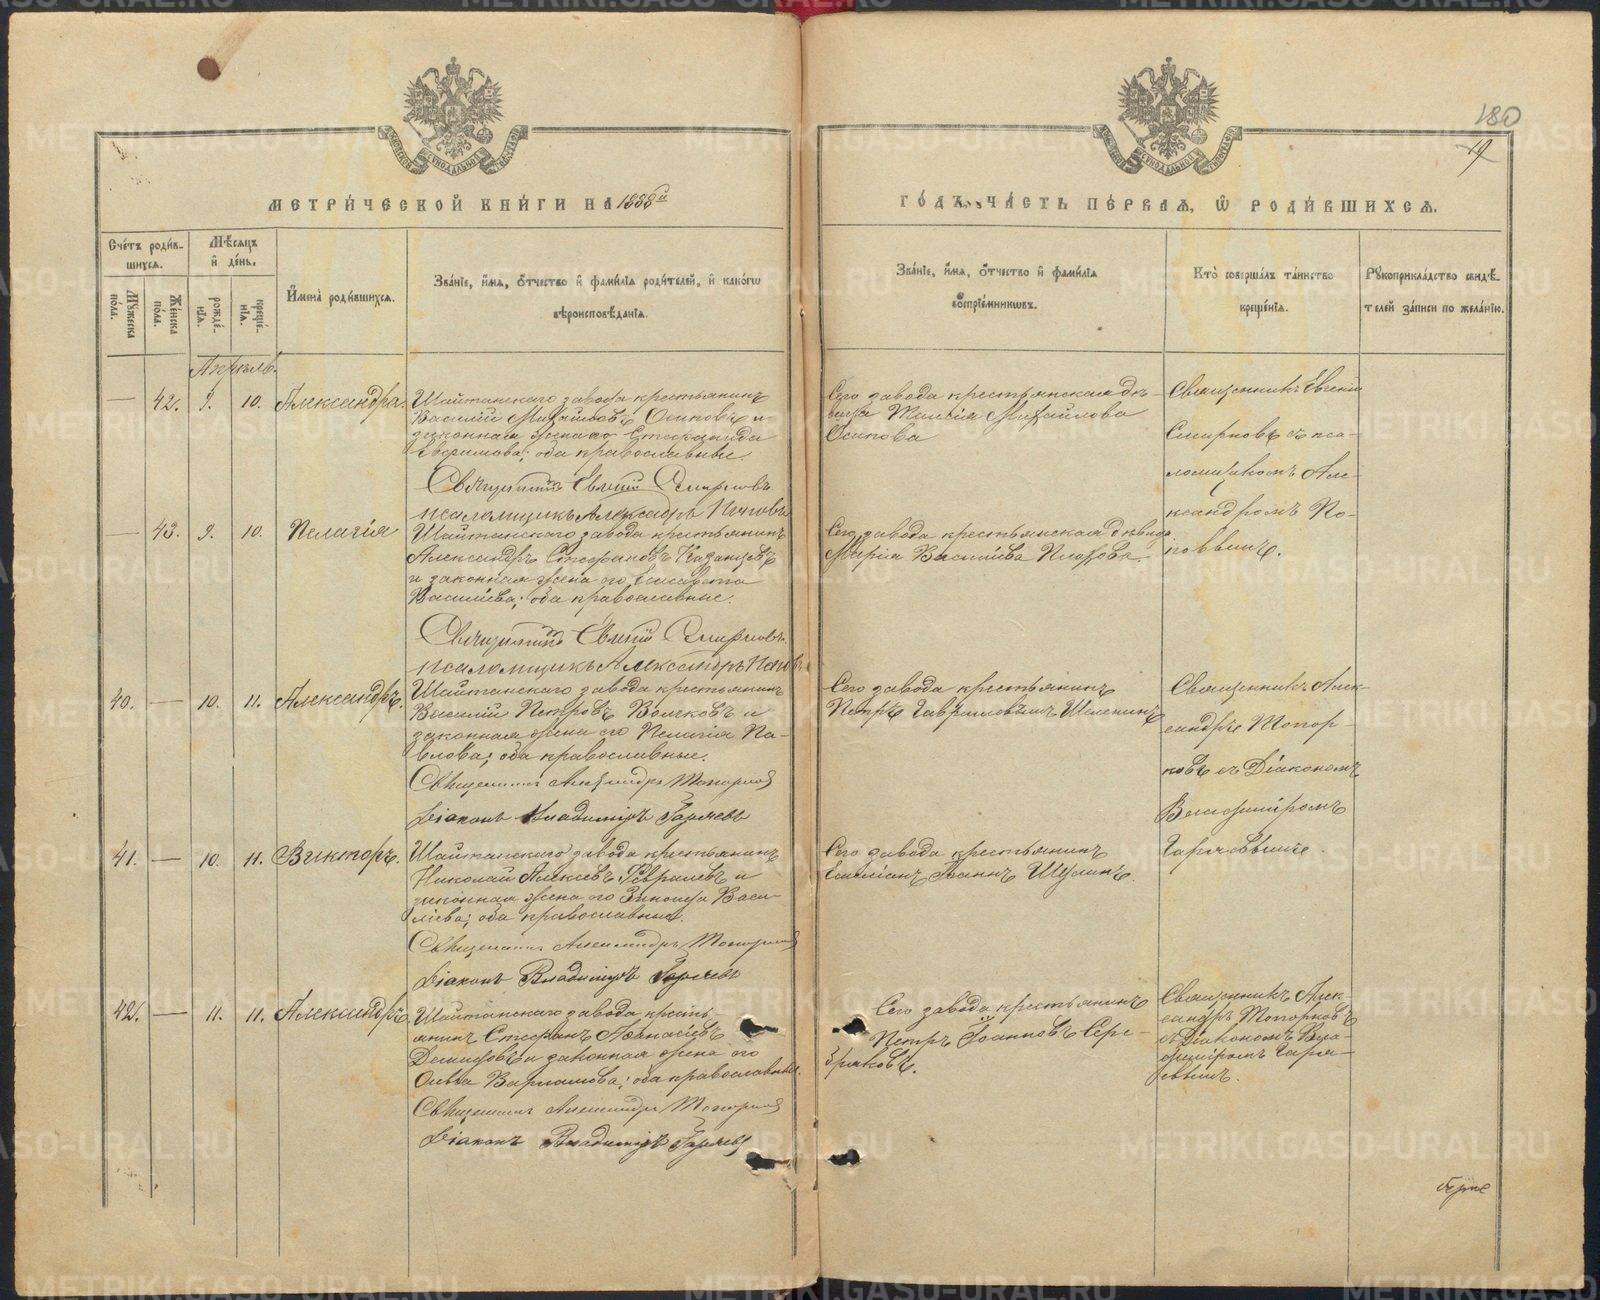 180
19
МЕТРИЧЕСКОЙ КНИГИ НА 1888й
ГОДЪ, ЧАСТЬ ПЕРВАЯ, Ѡ РОДИВШИХСЯ.
Счетъ родив-
шихся.
Мѣсяцъ
и день.
Мужеска
пола.
Женска
пола.
рожде-
нія.
креще-
нія.
Имена родившихся.
Званіе, имя, отчество и фамилія родителей, и какого
вѣроисповѣданія.
Званіе, имя, отчество и фамилія
воспріемниковъ.
Кто совершалъ таинство
крещенія.
Рукоприкладство свидѣ-
телей записи по желанію.
Апрѣль.
— 42. 9. 10. Александра.
Шайтанскаго завода крестьянинъ
Василій Михайловъ Осиповъ и
законная жена его Стефанида
Евфимова; оба православные.
Священникъ Евгеній Смирновъ
псаломщикъ Александръ Поповъ
Сего завода крестьянская дѣ-
вица Михайлова
Осипова
Священникъ Евгеній
Смирновъ съ пса-
ломщикомъ Але-
ксандромъ По-
повымъ.
— 43. 9. 10. Пелагія
Шайтанскаго завода крестьянинъ
Александръ Стефановъ Казанцевъ
и законная жена его Елисавета
Василіева; оба православные.
Священникъ Евгеній Смирновъ
псаломщикъ Александръ Поповъ
Сего завода крестьянская дѣвица
Марія Василіева
40. — 10. 11. Александръ.
Шайтанскаго завода крестьянинъ
Василій Петровъ Волковъ и
законная жена его Пелагія Па-
влова; оба православные.
Священникъ Александръ Топорковъ
Діаконъ Владиміръ Гаряевъ
Сего завода крестьянинъ
Петръ Гавриловичъ
Священникъ Алек-
сандръ Топор-
ковъ съ Діакономъ
Владиміромъ
Гаряевымъ.
41. — 10. 11. Викторъ.
Шайтанскаго завода крестьянинъ
Николай Алексѣевъ Февралевъ и
законная жена его Зиновія Васи-
ліева; оба православные.
Священникъ Александръ Топорковъ
Діаконъ Владиміръ Гаряевъ
Сего завода крестьянинъ
42. — 11. 11. Александръ.
Шайтанскаго завода кресть-
янинъ Стефанъ Аѳанасіевъ
Демидовъ и законная жена его
Ольга Варламова; оба православные.
Священникъ Александръ Топорковъ
Діаконъ Владиміръ Гаряевъ
Сего завода крестьянинъ
Петръ Іоанновъ Сере-
бряковъ.
Священникъ Алек-
сандръ Топорковъ
съ Діакономъ Вла-
диміромъ Гаря-
евымъ.